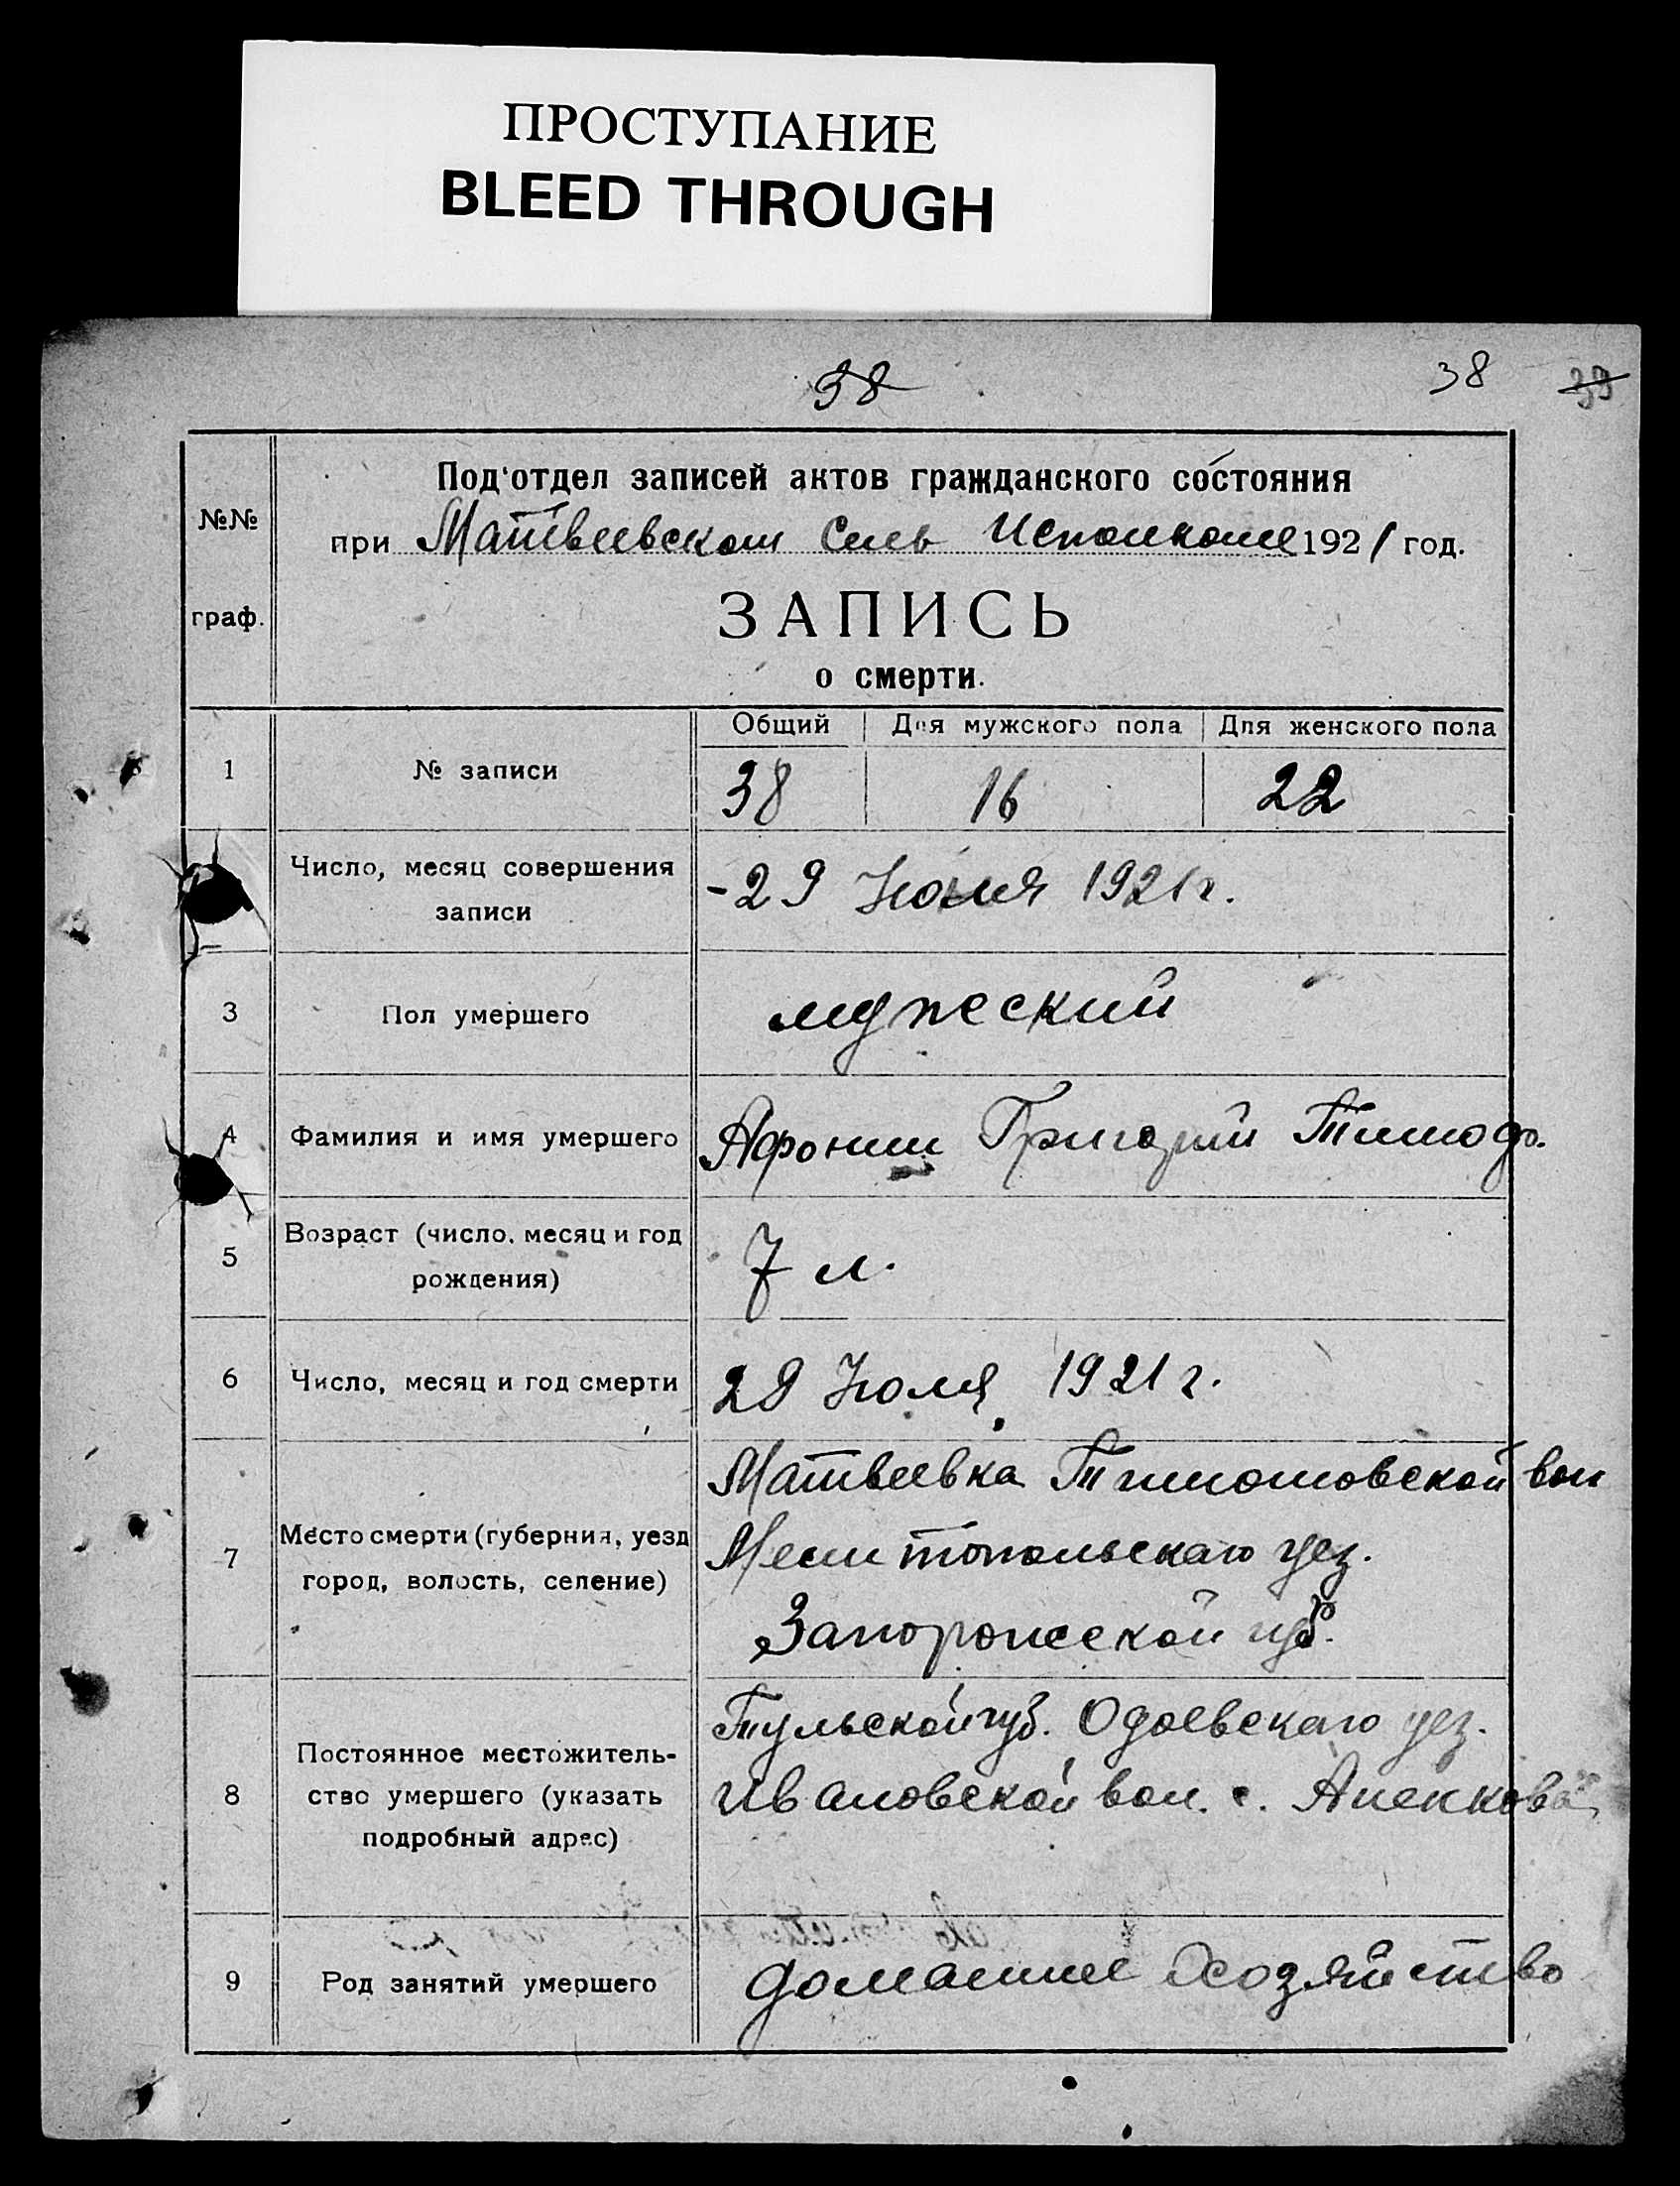 ПРОСТУПАНИЕ
BLEED THROUGH
38 38 39
№№ граф.
Под'отдел записей актов гражданского состояния
при Матвеевском Сель Исполкоме 1921 год.
ЗАПИСЬ
о смерти.
Общий Для мужского пола Для женского пола
1 № записи 38 16 22
Число, месяц совершения
записи
-29 Июля 1921 г.
3 Пол умершего мужеский
4 Фамилия и имя умершего Афонин Григорий Тимоф.
5 Возраст (число, месяц и год
рождения)
7 л.
6 Число, месяц и год смерти 29 Июля 1921 г.
7 Место смерти (губерния, уезд
город, волость, селение)
Матвеевка Тимошовской вол
Мелитопольскаго уез.
Запорожской губ.
8 Постоянное местожитель-
ство умершего (указать
подробный адрес)
Тульской губ. Одоевскаго уез.
Ивановской вол. с.
9 Род занятий умершего домашнее хозяйство